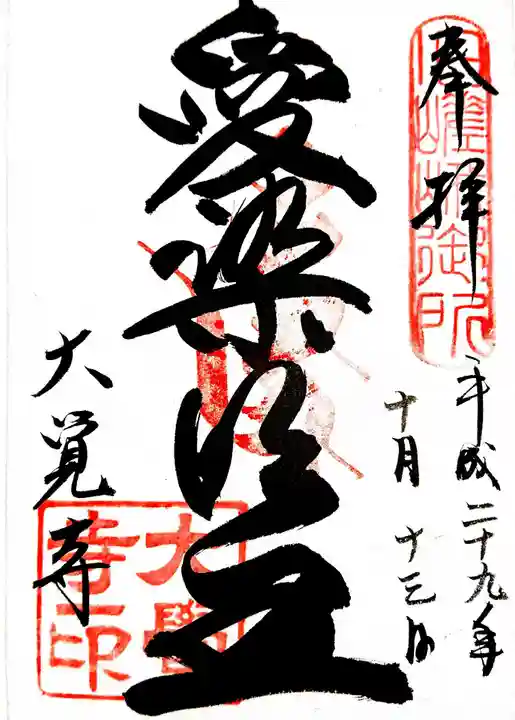 奉拝
嵯峨御所
平成二十九年
十月十三日
愛染明王
大覚寺
大覺寺印